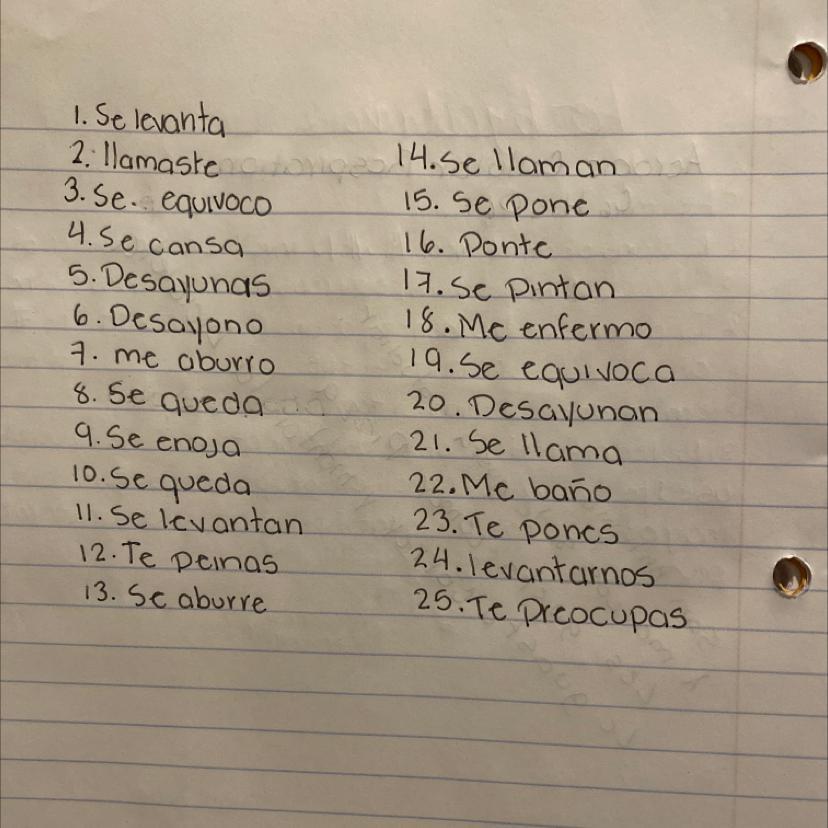 1. Se levanta
2. llamaste
3. Se. equivoco
4. Se cansa
5. Desayunas
6. Desayono
7. me aburro
8. Se queda
9. Se enoja
10. Se queda
11. Se levantan
12. Te peinas
13. Se aburre
14. Se llaman
15. Se pone
16. Ponte
17. Se pintan
18. Me enfermo
19. Se equivoca
20. Desayunan
21. Se llama
22. Me baño
23. Te pones
24. levantarnos
25. Te preocupas